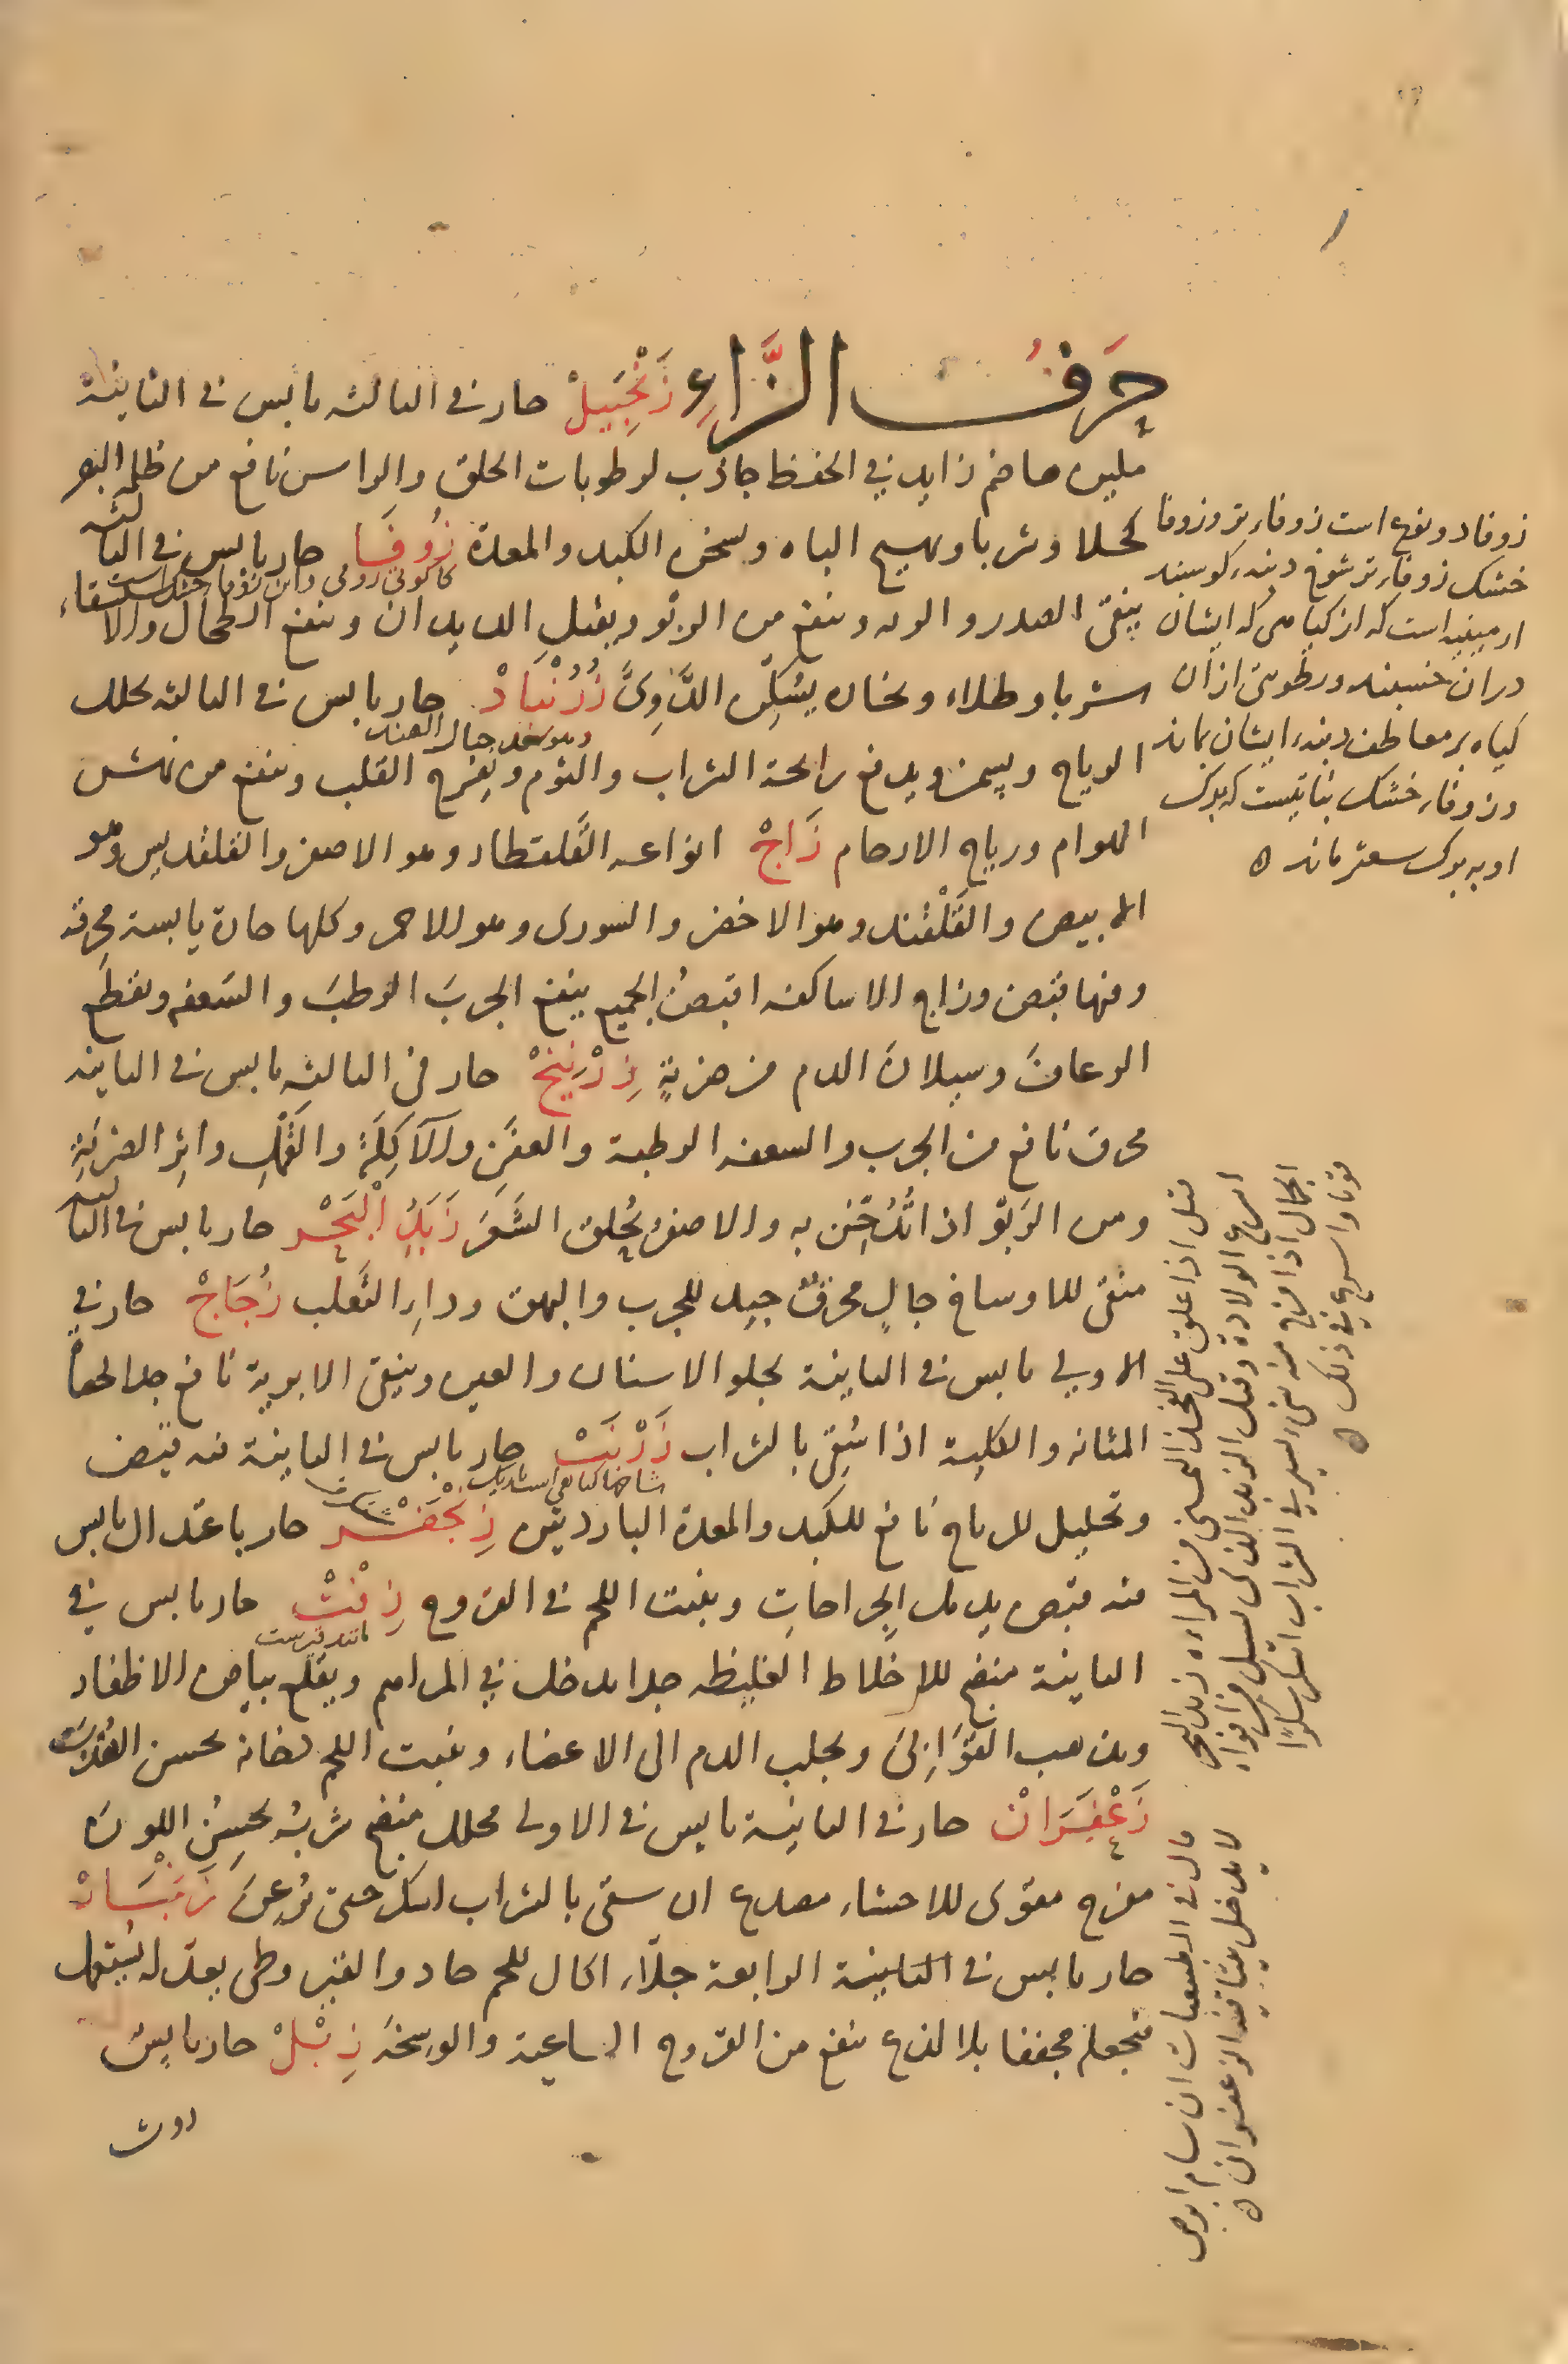 حَرفُ الزَّاءِ زَنْجَبِيلْ حار في الثالثه يابس في الثانية
ملين هاضم زايد في الحفظ جاذب لرطوبات الحلق والراس نافع من ظلمه البصر
كحلا وشربا ويهيج الباه ويسخن الكبد والمعدة زُوفَا حار يابس في الثالثه
ينقى الصدر والريه وينفع من الربو ويقتل الديدان وينفع الطحال والاستسقاء
شربا وطلاء وبخاره يسكن الدَّوِىَّ زُرُنْبَادْ حار يابس في الثالثه محلل
الرياح ويسمن ويدفع رايحة الشراب والثوم ويفرح القلب وينفع من نهش
الهوام ورياح الارحام زَاجْ انواعه القَلقطار وهو الاصفر والقلقديس وهو
الابيض والقَلْقند وهو الاخضر والسورى وهو الاحمر وكلها حارة يابسة محرقه
وفيها قبض وزاج الاساكفه اقبضُ الجميع ينفع الجربَ الرطبَ والسَعفه ويقطع
الرعافَ وسيلانَ الدم من ضربةٍ زِرْنِيخْ حار في الثالثه يابس في الثانيه
محرق نافع من الجرب والسعفه الرطبة والعفَنِ والآكِلَةِ والقَملِ واثرِ الضربَةِ
ومن الرَبوِ اذا تُدُخِّن به والاصفرُ يحلق الشَعَر زَبَدُ الْبَحْر حار يابس في الثالثه
منقى للاوساخ جالٍ محرقٌ جيد للجرب والبهق وداءِ الثَعلب زُجَاجْ حار في
الاولى يابس في الثانية يجلو الاسنان والعين وينقى الابرية نافع جدا لحصاة
المثانه والكلية اذا سُقِىَ بالشراب زَرْنَبْ حار يابس في الثانية فيه قبض
وتحليل للرياح نافع للكبد والمعدة الباردتين زِنْجَفْر حار باعتدال يابس
فيه قبض يدمل الجراحاتِ وينبت اللحم في القروح زِفْتْ حار يابس في
الثانية منضج للاخلاط الغليظه جدا يدخل في المراهم ويقلع بياض الاظفار
ويذهب القَوَابِىَ ويجلب الدم الى الاعضاء وينبت اللحم دخانه يحسن الهُدْبَ
زَعْفَرَانْ حار في الثانية يابس في الاولى محلل منضج شربُه يُحسِنُ اللونَ
مفرح مقوى للاحشاء مصدع ان سقى بالشراب اسكر حتى يُرعن زَنْجَارْ
حار يابس في الثانية الرابعة جلّاء اكال للحم حاد والقيروطى يعدله
فيجعله مجففا بلا لذع ينفع من القروح الساعية والوسخة زِبْلْ حار يابس
روث
زوفا دو نوع است زوفاء تر وزوفا
خشك زوفاء تر شوخ دنبه كوسبند
ارمينيه است كه از كياهى كه ايشان
دران خسبند ورطوبتى ازان
كياه بر معاطف دنبه ايشان بماند
وزوفاء خشك نباتيست كه برك
او به برك سعتر ماند ه
كاكوتى رومى واين زوفا خشك است
مانند قيرست
قيل اذا علق على الفخذ اليمنى من المراه زبد البحر
اسرع الولادة وقيل الزبد الذى يسيل من افواه
الجمال اذا مزج منه شىء يسير في الشراب اسكر سكرا
قويا واسرع في ذلك ه
قال في الطبيعيات ان سام ابرص
لا يدخل بيتا فيه الزعفران ه